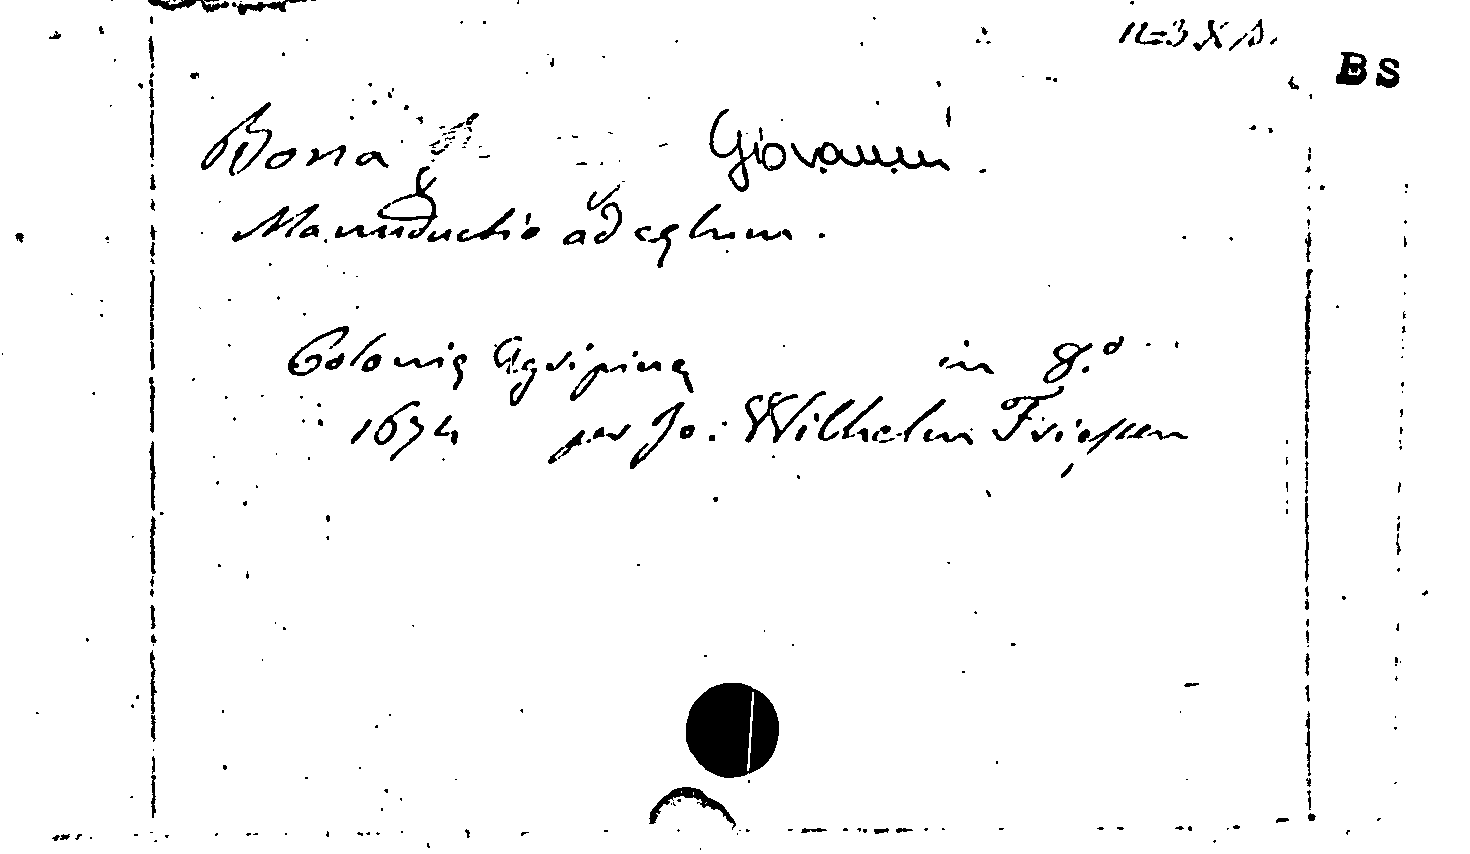 BS
Bona Giovanni.
Manuductio ad cęlum.
Colonię Agripinę in 8.º
1674 per Jo: Wilhelm Friessem